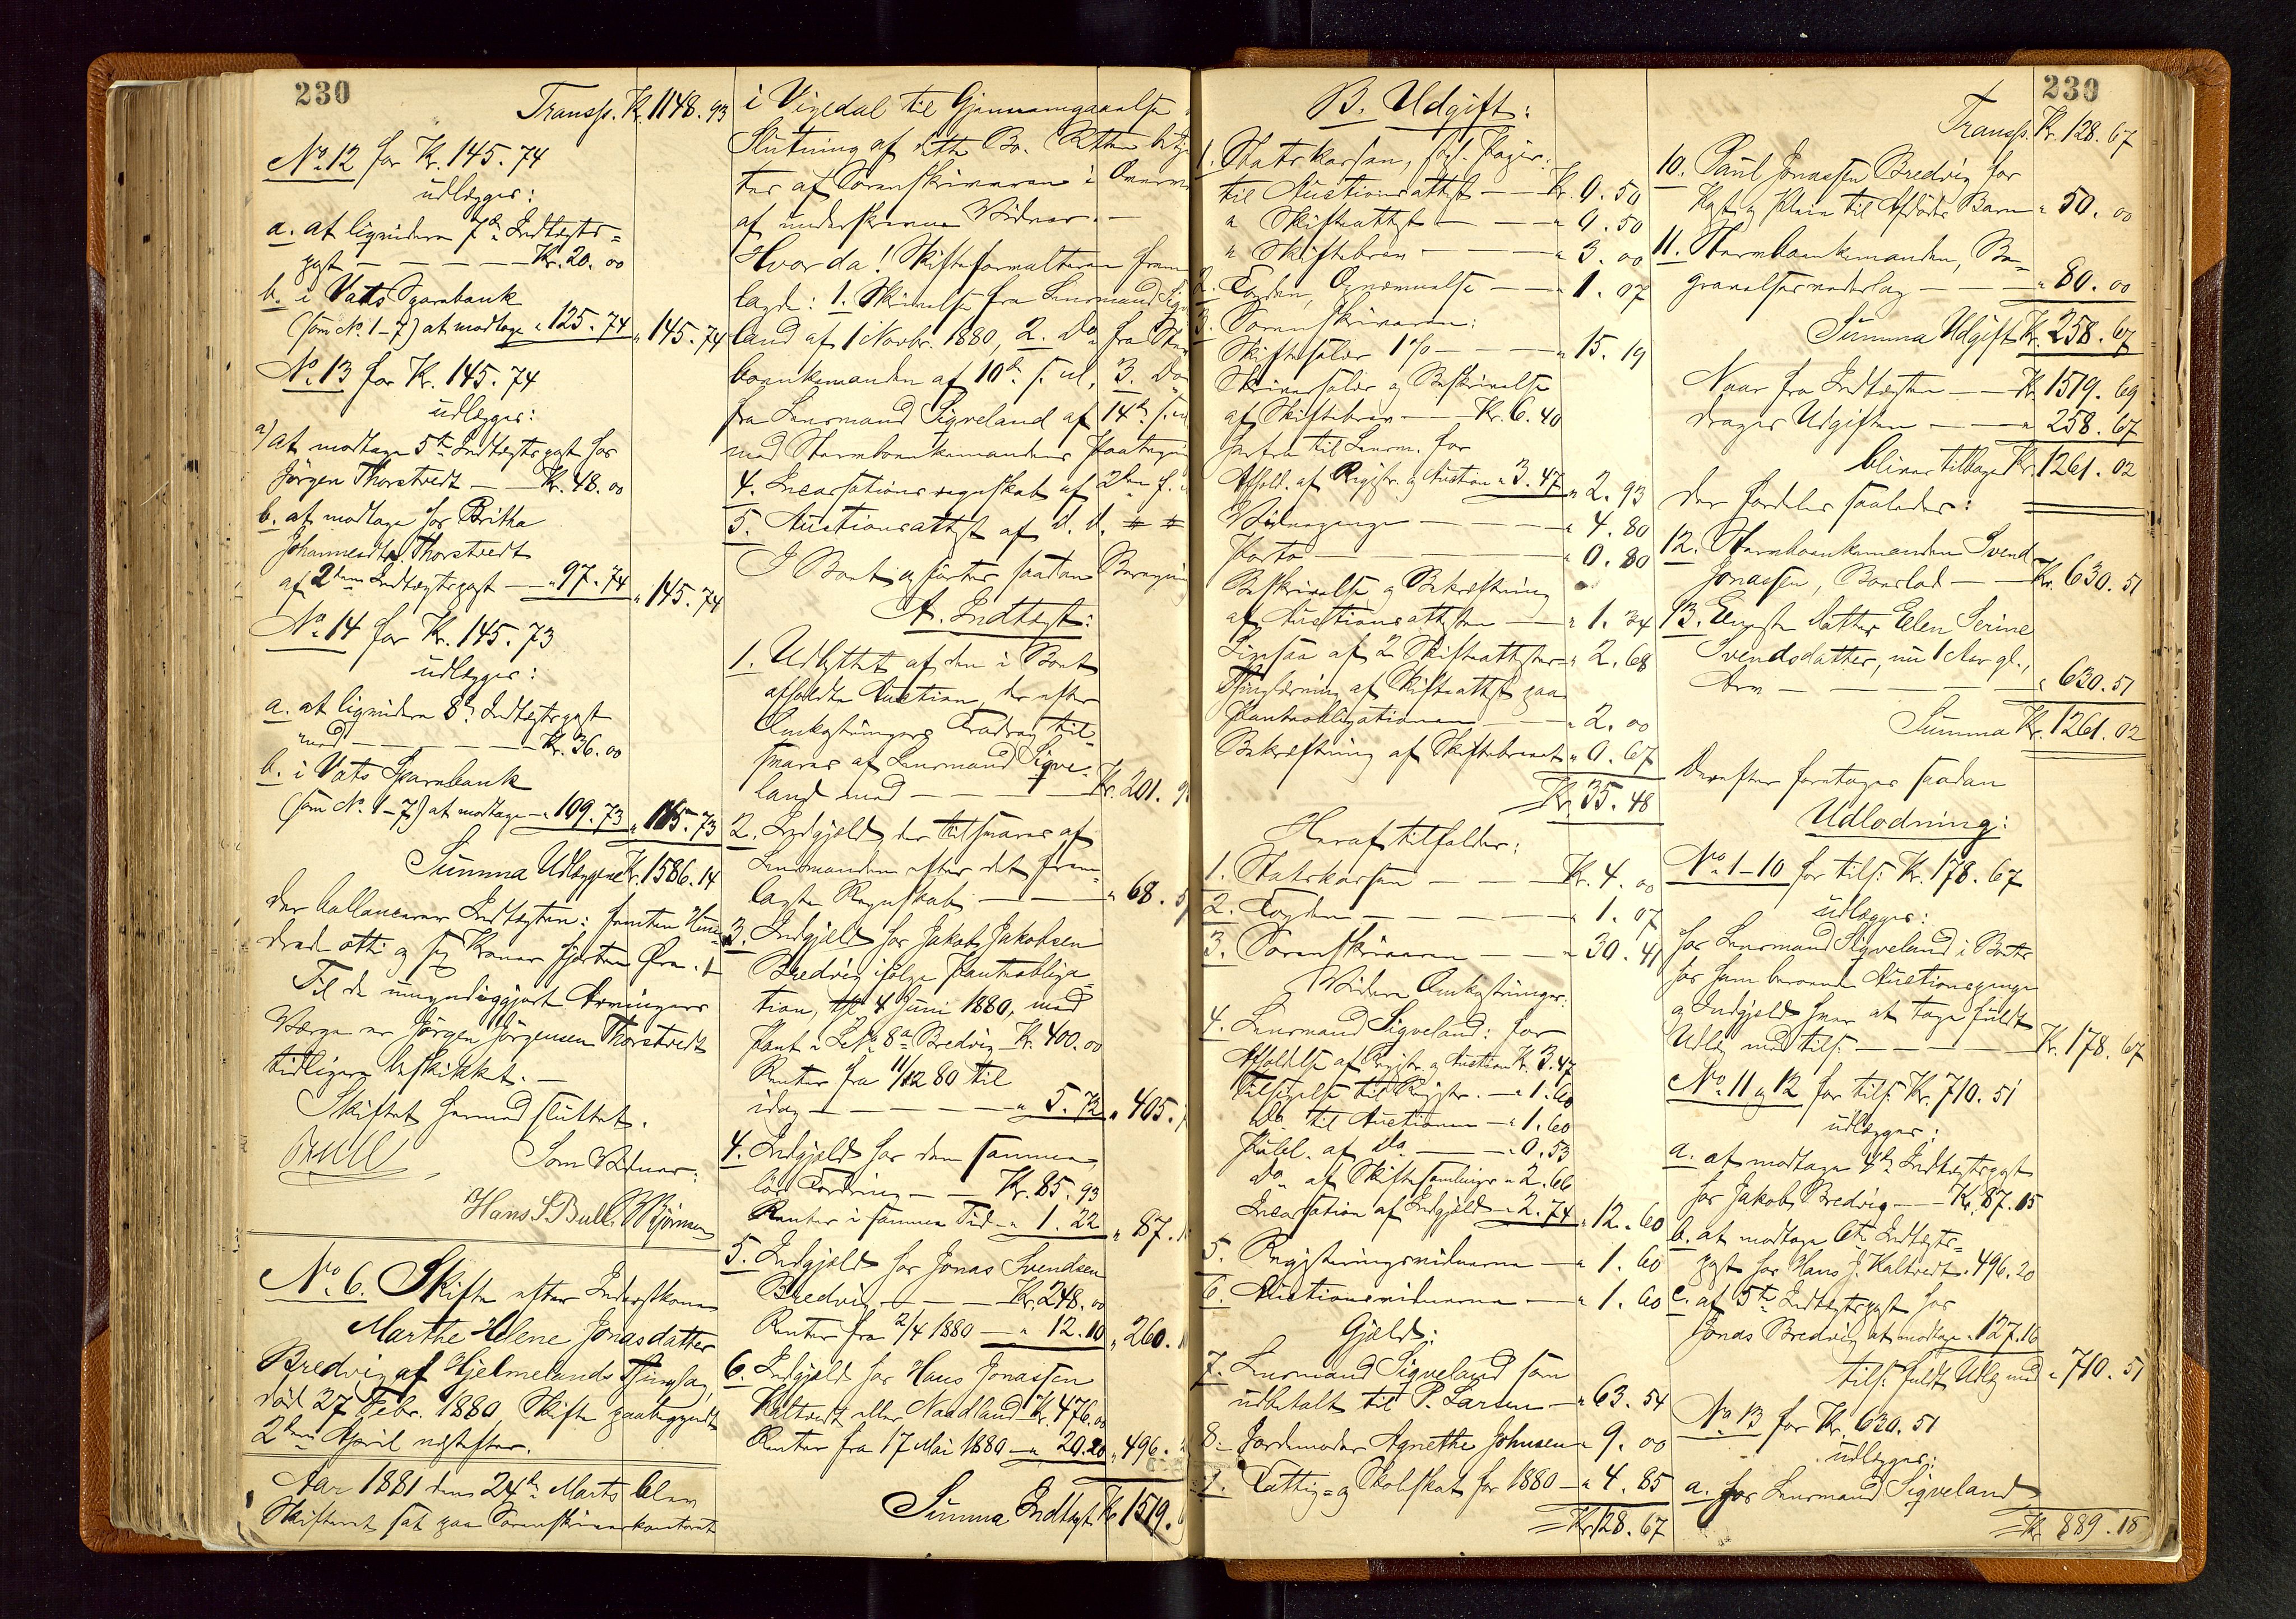 230
Transp. Kr. 1148.93
No. 12 for Kr. 145.74
udlægges:
a. at liqvidere 7de Indtægts=
post — Kr. 20.00
b. i Vats Sparebank
(som No. 1-7) at modtage " 125.74 " 145.74
No. 13 for Kr. 145.74
udlægges:
a) at modtage 5te Indtægtspost hos
Jørgen Thorstvedt — Kr. 48.00
b. at modtage hos Britha
Johannesdtr. Thorstvedt
af 2den Indtægtspost — " 97.74 " 145.74
No. 14 for Kr. 145.73
udlægges:
a. at liqvidere 8de Indtægtspost
med — Kr. 36.00
b. i Vats Sparebank
(som No. 1-7) at modtage — " 109.73 " 145.73
Summa Udlæggene Kr. 1586.14
der ballancerer Indtægten: femten Hun=
drede otti og sex Kroner fjorten Øre.
Til de umyndiggjorte Arvingers
Værge er Jørgen Jørgensen Thorstvedt
tidligere beskikket. —
Skiftet hermed sluttet.
Bull
Som Vidner:
Hans S Bull. Bjørnsen
No. 6. Skifte efter Inderstkone
Marthe Helene Jonasdatter
Bredvig af Hjelmelands Thinglag,
død 27 Febr. 1880, Skifte paabegyndt
2den April næstefter.
Aar 1881 den 24de Marts blev
Skifteret sat paa Sorenskriverkontoret
i Vigedal til Gjennemgaaelse
Slutning af dette Bo. Retten betje
tes af Sorenskriveren i Overvær
af underskrevne Vidner. —
Hvor da! Skifteforvalteren frem
lagde: 1. Skrivelse fra Lensmand Sigve
land af 1 Novbr. 1880, 2. Do fra Ster
boenkemanden af 10de s. M., 3. Do
fra Lensmand Sigveland af 14de s. M
med Sterboenkemandens Paategning
4. Incassationsregnskab af 2den f.
5. Auctionsattest af d. d.
I Boet opførtes saadan Beregning
A. Indtægt:
1. Udbyttet af den i Boet
afholdte Auction, der efter
Omkostningers Fradrag til=
svares af Lensmand Sigve=
land med — Kr. 201.
2. Indgjæld, der tilsvares af
Lensmanden efter det frem=
lagte Regnskab — " 68.
3. Indgjæld hos Jakob Jakobsen
Bredvig ifølge Panteobliga=
tion, tgl. 4 Juni 1880, med
Pant i L No. 8a Bredvig Kr. 400.00
Renter fra 11/12 80 til
idag — " 5.72 " 405.
4. Indgjæld hos den samme,
løs Fordring — Kr. 85.93
Renter i samme Tid " 1.22 " 87.
5. Indgjæld hos Jonas Svendsen
Bredvig — Kr. 248.00
Renter fra 2/4 1880 — " 12.10 " 260.
6. Indgjæld hos Hans Jonassen
Kaltvedt eller Naadland Kr. 476.00
Renter fra 17 Mai 1880 — " 20.20 " 496.
Summa Indtægt Kr. 1519.
B. Udgift:
1. Statskassen, for Papir:
til Auctionsattest — Kr. 0.50
" Skifteattest — " 0.50
" Skiftebrev — " 3.00
2. Fogden, Opnævnelse — " 1.07
3. Sorenskriveren:
Skiftesalær 1% — " 15.19
Skriversalær og Beskrivelse
af Skiftebrev — Kr. 6.40
herfra til Lensm. for
Afhold. af Registr. og Auction " 3.47 " 2.93
Vidnepenge — " 4.80
Porto — " 0.80
Beskrivelse og Bekræftning
af Auctionsattesten — " 1.34
Ligesaa af 2 Skifteattester " 2.68
Thinglæsning af Skifteattest paa
Panteobligationen — " 2.00
Bekræftning af Skiftebrevet " 0.67
Kr. 35.48
Heraf tilfalder:
1. Statskassen — Kr. 4.00
2. Fogden — " 1.07
3. Sorenskriveren — " 30.41
Videre Omkostninger:
4. Lensmand Sigveland: for
Afholdelse af Registr. og Auction Kr. 3.47
Tilsigelse til Registr. — " 1.60
Do til Auctionen — " 1.60
Publ. af Do — " 0.53
Do af Skiftesamlinger " 2.66
Incassation af Indgjæld — " 2.74 " 12.60
5. Registreringsvidnerne — " 1.60
6. Auctionsvidnerne — " 1.60
Gjæld:
7. Lensmand Sigveland som
udbetalt til P. Larsen — " 63.54
8. Jordemoder Agnethe Johnsen " 9.00
9. Fattig= og Skoleskat for 1880 — " 4.85
Kr. 128.67
230
Transp. Kr. 128.67
10. Paul Jonassen Bredvig for
Kost og Pleie til Afdødes Barn " 50.00
11. Sterboenkemanden, Be=
gravelsesvederlag — " 80.00
Summa Udgift Kr. 258.67
Naar fra Indtægten — Kr. 1519.69
drages Udgiften — " 258.67
bliver tilbage Kr. 1261.02
der fordeles saaledes:
12. Sterboenkemanden Svend
Jonassen, Boeslod — Kr. 630.51
13. Eneste Datter Elen Serine
Svendsdatter, nu 1 Aar gl.,
Arv — " 630.51
Summa Kr. 1261.02
Derefter foretoges saadan
Udlodning:
No. 1-10 for tils. Kr. 178.67
udlægges:
hos Lensmand Sigveland i Boets
hos ham beroende Auctionspenge
og Indgjæld hver at tage fuldt
Udlæg med tils. — Kr. 178.67
No. 11 og 12 for tils. Kr. 710.51
udlægges:
a. at modtage 4de Indtægtspost
hos Jakob Bredvig — Kr. 87.15
b. at modtage 6te Indtægts=
post hos Hans J. Kaltvedt " 496.20
c. af 5te Indtægtspost hos
Jonas Bredvig at modtage " 127.16
tils. fuldt Udlæg med " 710.51
No. 13 for Kr. 630.51
udlægges:
a. hos Lensmand Sigveland
Kr. 889.18